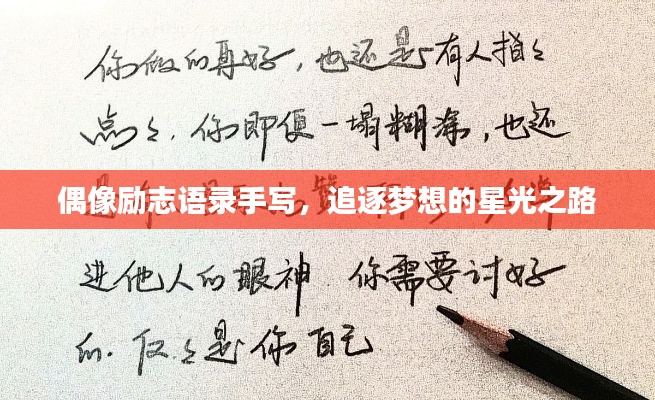 你做的再好，也还是有人指々
点々，你即便一塌糊涂，也还
偶像励志语录手写，追逐梦想的星光之路
进他人的眼神 你需要讨好
的．仅々是你自己